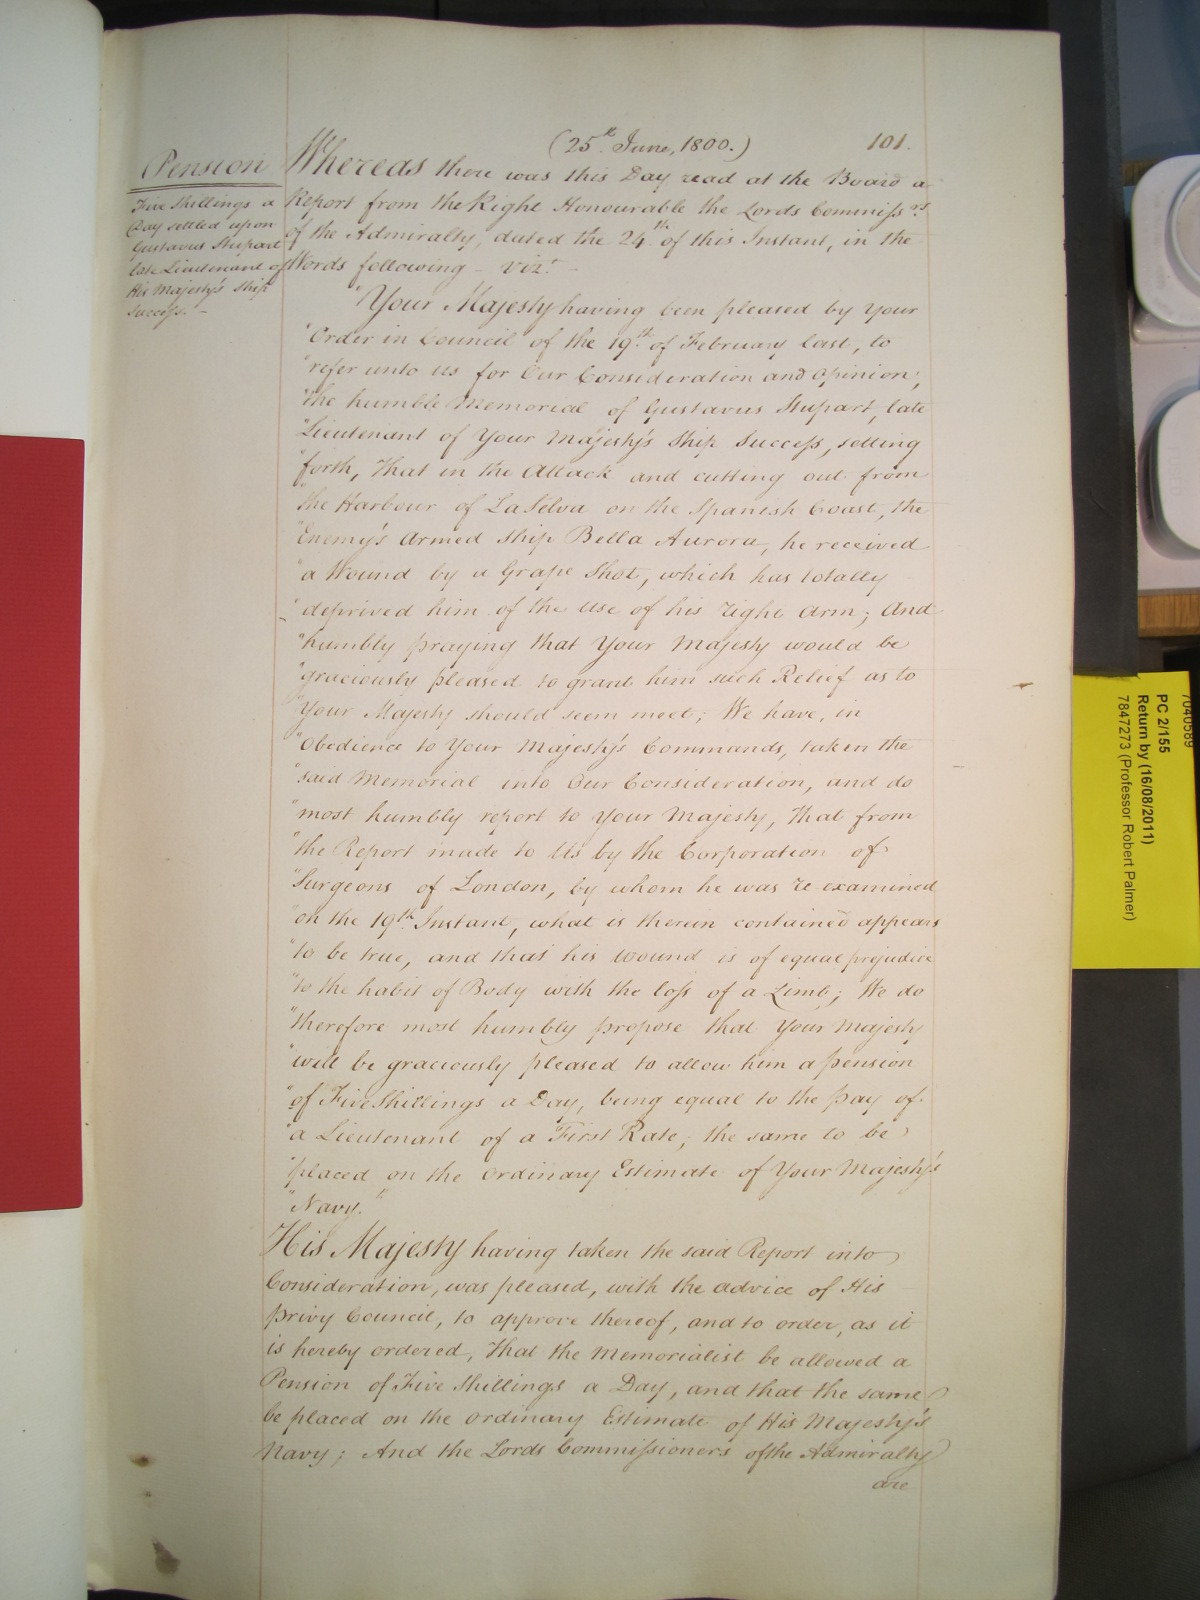 (25th June, 1800.) 101.
Pension
Five Shillings a
Day settled upon
Gustavus Stupart
late Lieutenant of
His Majesty's Ship
Success. -
Whereas there was this Day read at the Board a
Report from the Right Honourable the Lords Commissrs
of the Admiralty, dated the 24th of this Instant, in the
Words following - vizt -
"Your Majesty having been pleased by Your
"Order in Council of the 19th of February last, to
"refer unto Us for Our Consideration and Opinion,
"the humble Memorial of Gustavus Stupart, late
"Lieutenant of Your Majesty's Ship Success, setting
"forth, That in the Attack and cutting out from
"the Harbour of La Selva on the Spanish Coast, the
"Enemy's Armed Ship Bella Aurora, he received
"a Wound by a Grape Shot, which has totally
"deprived him of the Use of his right Arm; And
"humbly praying that Your Majesty would be
"graciously pleased to grant him such Relief as to
"Your Majesty should seem meet; We have, in
"Obedience to Your Majesty's Commands, taken the
"said Memorial into Our Consideration, and do
"most humbly report to Your Majesty, That from
"the Report made to Us by the Corporation of
"Surgeons of London, by whom he was re-examined
"on the 19th Instant, what is therein contained appears
"to be true, and that his Wound is of equal prejudice
"to the habit of Body with the loss of a Limb; We do
"therefore most humbly propose that Your Majesty
"will be graciously pleased to allow him a pension
"of Five Shillings a Day, being equal to the pay of
"a Lieutenant of a First Rate; the same to be
"placed on the Ordinary Estimate of Your Majesty's
"Navy."
His Majesty having taken the said Report into
Consideration, was pleased, with the advice of His
Privy Council, to approve thereof, and to order, as it
is hereby ordered, That the Memorialist be allowed a
Pension of Five Shillings a Day, and that the same
be placed on the Ordinary Estimate of His Majesty's
Navy; And the Lords Commissioners of the Admiralty
are
PC 2/155
Return by (16/08/2011)
7847273 (Professor Robert Palmer)